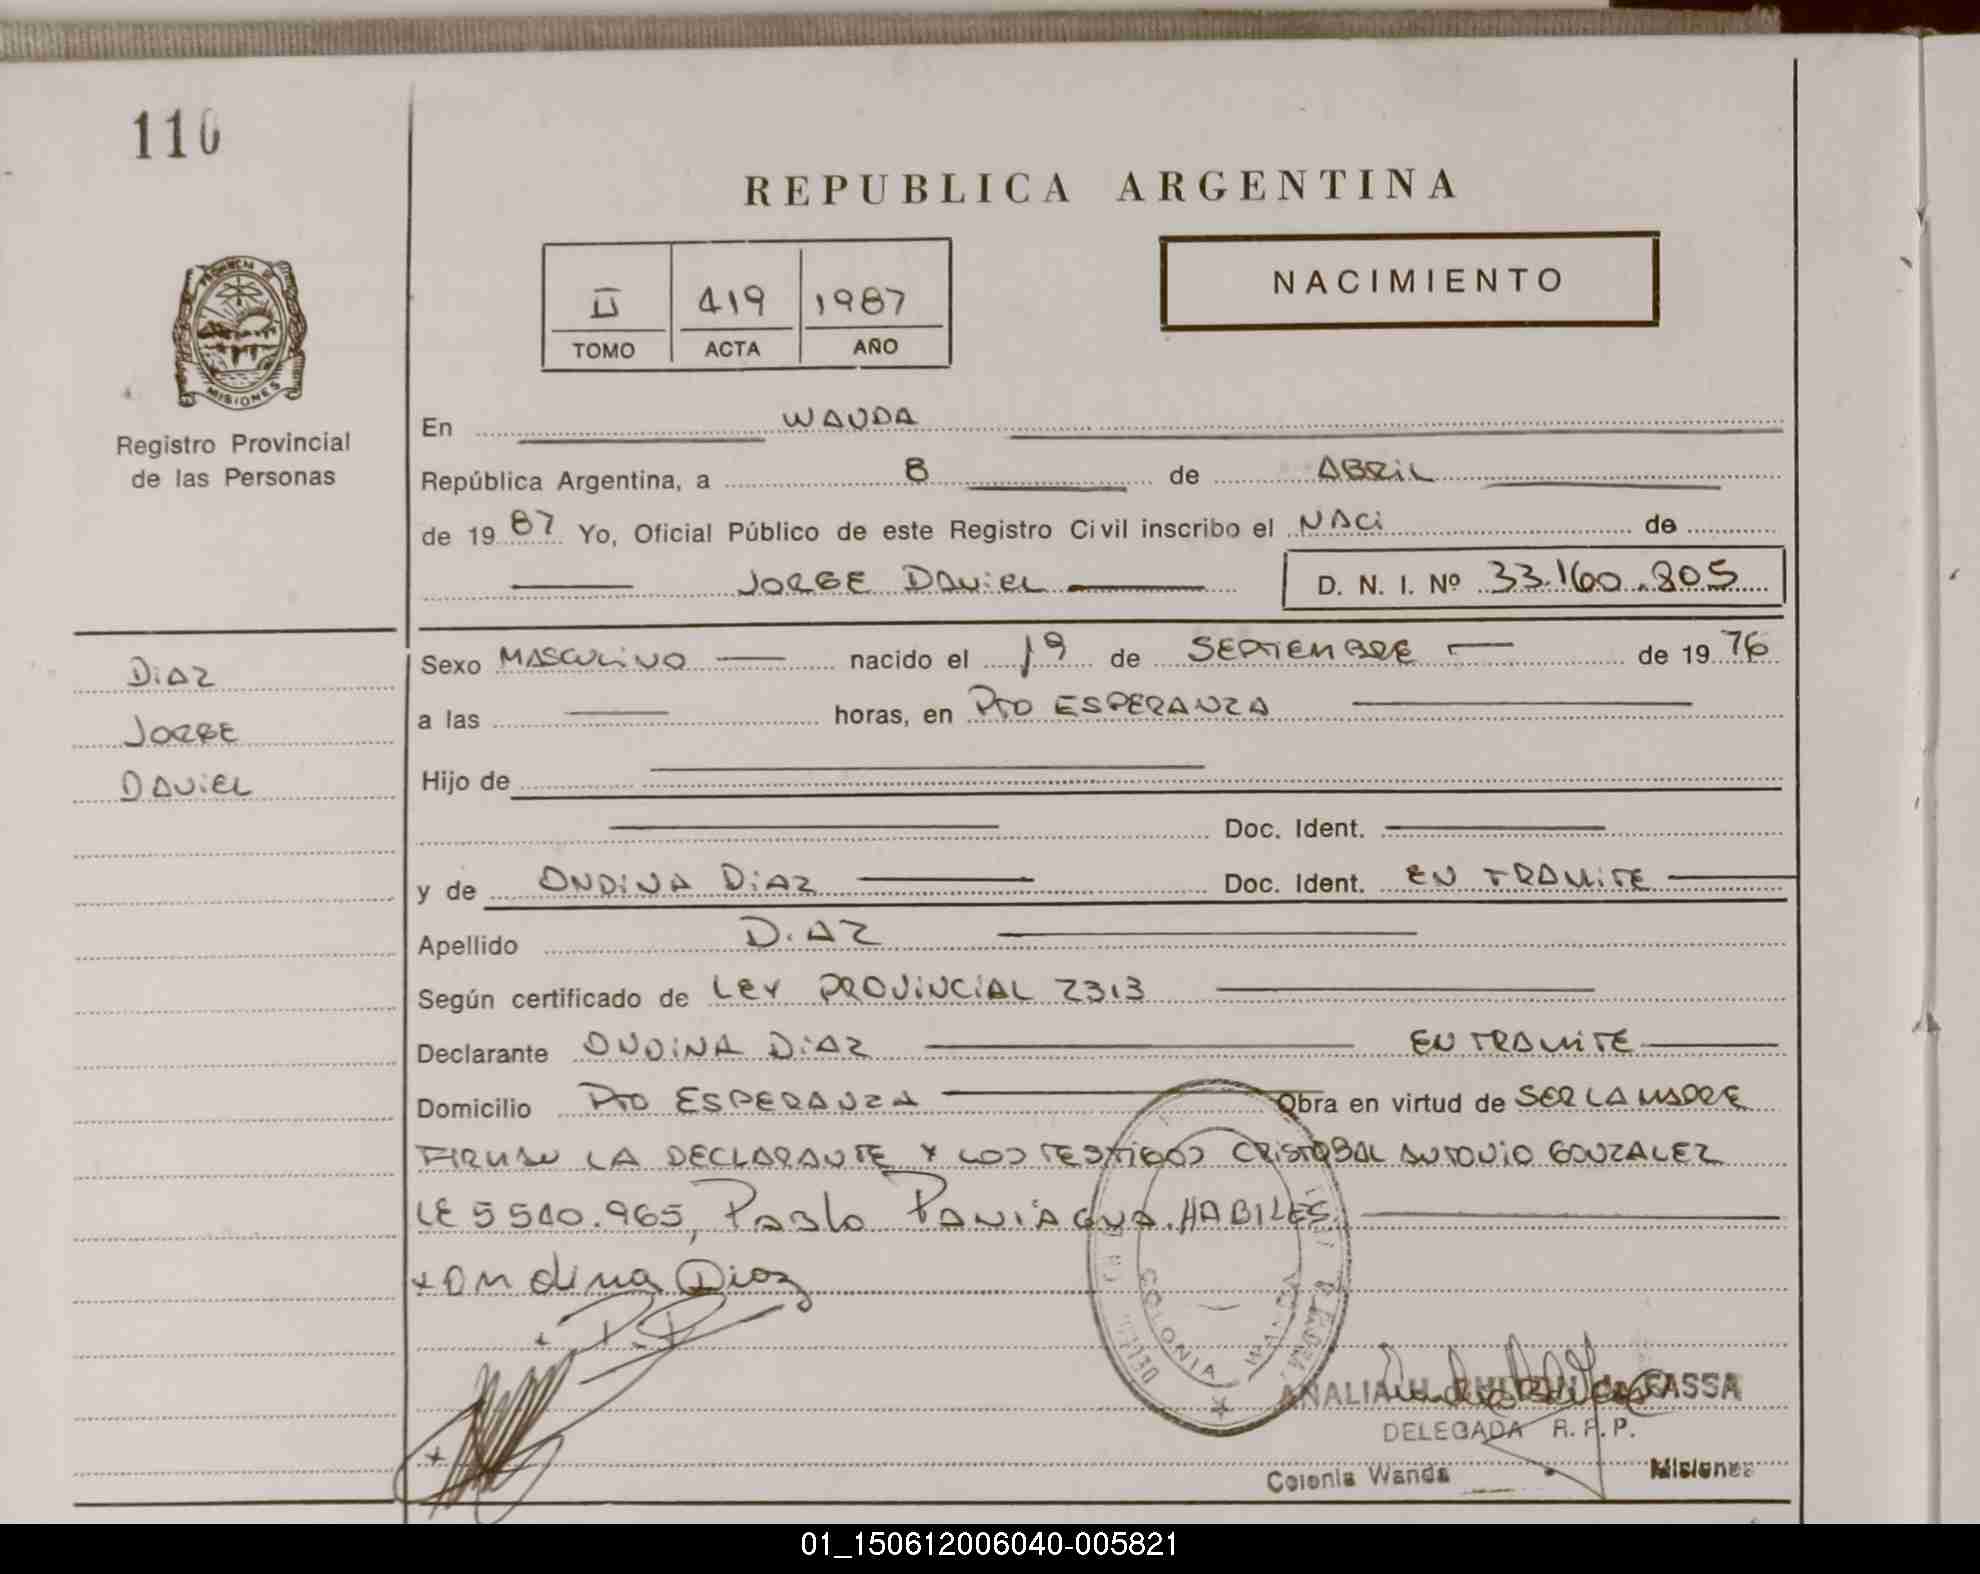 110
REPUBLICA ARGENTINA
PROVINCIA DE
MISIONES
Registro Provincial
de las Personas
II 419 1987
TOMO ACTA AÑO
NACIMIENTO
En WANDA
República Argentina, a 8 de ABRIL
de 19 87 Yo, Oficial Público de este Registro Civil inscribo el NACi de
JORGE DANiEL D. N. I. Nº 33.160.805
DiAZ
JORGE
DANiEL
Sexo MASCULiNO nacido el 19 de SEPTIEMBRE de 19 76
a las horas, en Pto ESPERANZA
Hijo de
Doc. Ident.
y de ONDiNA DiAZ Doc. Ident. EN TRAMiTE
Apellido DiAZ
Según certificado de LEY PROViNCiAL 2313
Declarante ONDiNA DiAZ EN TRAMiTE
Domicilio Pto ESPERANZA Obra en virtud de SER LA MADRE
FIRMAN LA DECLARANTE Y LOS TESTiGOS CRiSTOBAL ANTONiO GONZALEZ
LE 5510.965, Pablo PANiAGUA. HABILES.
x Ondina Diaz
x P.P
COLONIA WANDA
ANALIA FASSA
DELEGADA R. P. P.
x
Colonia Wanda Misiones
01_150612006040-005821